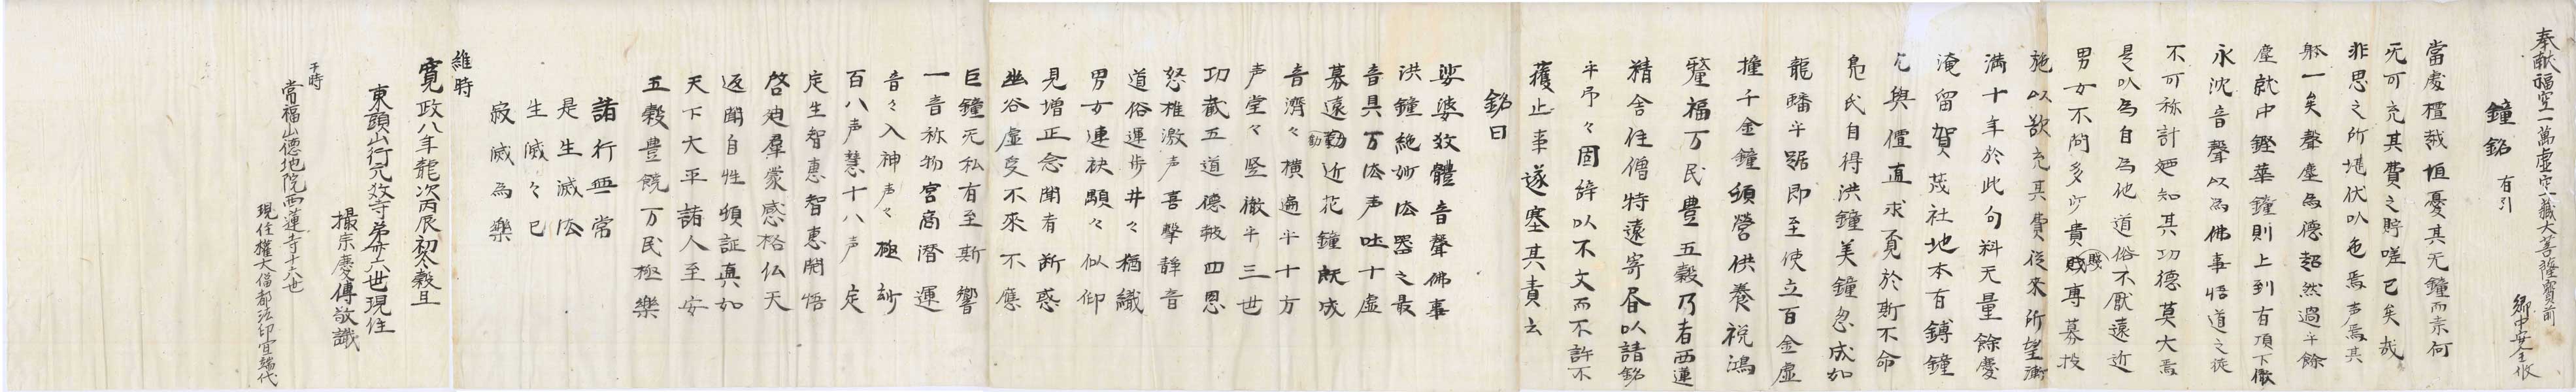 奉献福空一萬虚空藏大菩薩寳前
郷中安全攸
鐘銘 有引
當處櫃哉恒憂其无鐘而柰何
无可充其費之貯嗟已矣哉
非思之所堪伏以色焉声焉其
躰一矣聲塵為德超然過乎餘
塵就中鏗華鐘則上到有頂下徹
永沈音聲以為佛事悟道之徒
不可称計廼知其功德莫大焉
是以為自為他道俗不厭遠近
男女不問多少貴賤専募投
施以欲充其費従来所望漸
満十年於此句料天量餘慶
淹留賀茂社地本有鎛鐘
乞與價直求覓於斯不命
鳧氏自得洪鐘美鐘忽成如
龍蟠乎踞即至使立百金虚
撞千金鐘頻營供養祝鴻
釐福万民豊五穀乃者西蓮
精舎住僧特遠寄昬以請銘
乎予々固辞以不文而不許不
獲止事遂塞其責云
銘曰
娑婆教體音聲佛事
洪鐘絶妙法器之最
音具万法声吐十虚
募遠勸近花鐘既成
音濟々横遍乎十方
声堂々竪徹乎三世
功載五道德報四恩
怒椎激声喜擊靜音
道俗運步井々猶織
男女連袂顒々似仰
見増正念聞有断惑
幽谷虚受不来不應
巨鐘无私有至斯響
一音称物宮商潜運
音々入神声々極妙
百八声慧十八声定
定生智恵智恵開悟
啓廸羣蒙感格仏天
返聞自性頓証真如
天下大平諸人至安
五穀豊饒万民極樂
諸行無常
是生滅法
生滅々已
寂滅為樂
維時
寛政八年龍次丙辰初冬穀旦
東頭山行元教寺弟廿六世現住
撮宗慶傳敬識
于時
常福山德地院西蓮寺十六世
現住權大僧都法印宣端代